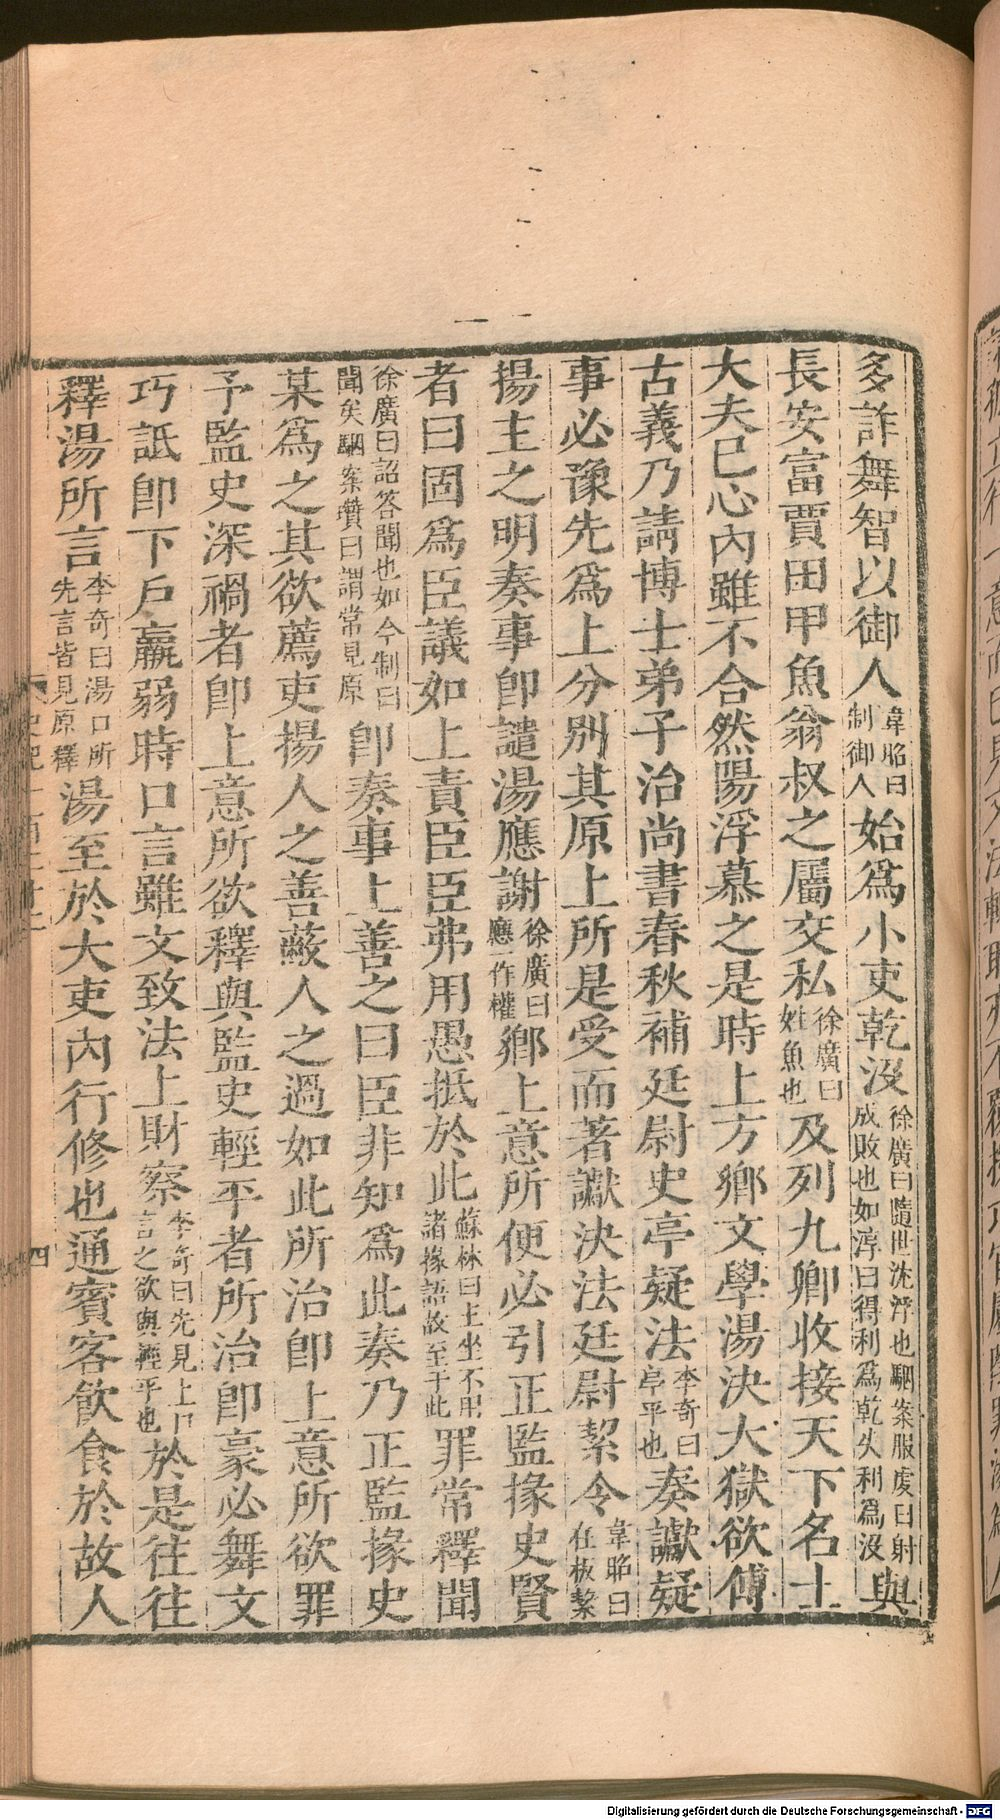 多詐舞智以御人韋昭曰制御人始爲小吏乾沒徐廣曰隨世沈浮也駰案服虔曰射成敗也如淳曰得利爲乾失利爲沒與
長安富賈田甲魚翁叔之屬交私徐廣曰姓魚也及列九卿收接天下名士
大夫已心內雖不合然陽浮慕之是時上方鄉文學湯決大獄欲傅
古義乃請博士弟子治尚書春秋補廷尉史亭疑法李奇曰亭平也奏讞疑
事必豫先爲上分別其原上所是受而著讞決法廷尉絜令韋昭曰在板絜
揚主之明奏事卽譴湯應謝徐廣曰應一作權鄉上意所便必引正監掾史賢
者曰固爲臣議如上責臣臣弗用愚抵於此蘇林曰上坐不用諸掾語故至于此罪常釋聞
徐廣曰詔答聞也如今制曰聞矣駰案瓚曰謂常見原卽奏事上善之曰臣非知爲此奏乃正監掾史
某爲之其欲薦吏揚人之善蔽人之過如此所治卽上意所欲罪
予監史深禍者卽上意所欲釋與監史輕平者所治卽豪必舞文
巧詆卽下戶羸弱時口言雖文致法上財察李奇曰先見上口言之欲與輕平也於是往往
釋湯所言李奇曰湯口所先言皆見原釋湯至於大吏內行修也通賓客飮食於故人
四
Digitalisierung gefördert durch die Deutsche Forschungsgemeinschaft - DFG